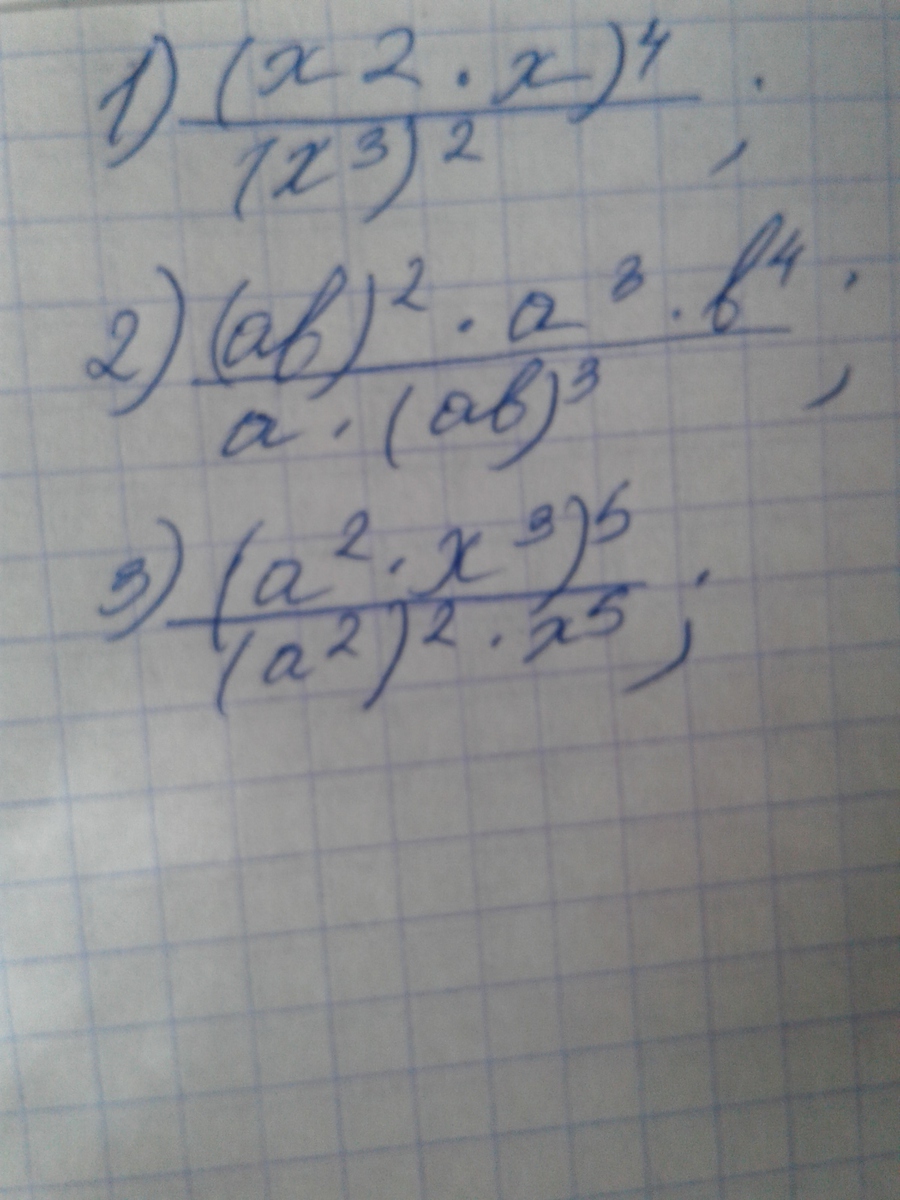 1) (x2 · x)⁴ ;
(x³)²
2) (ab)² · a³ · b⁴ ;
a · (ab)³
3) (a² · x³)⁵ ;
(a²)² · x⁵